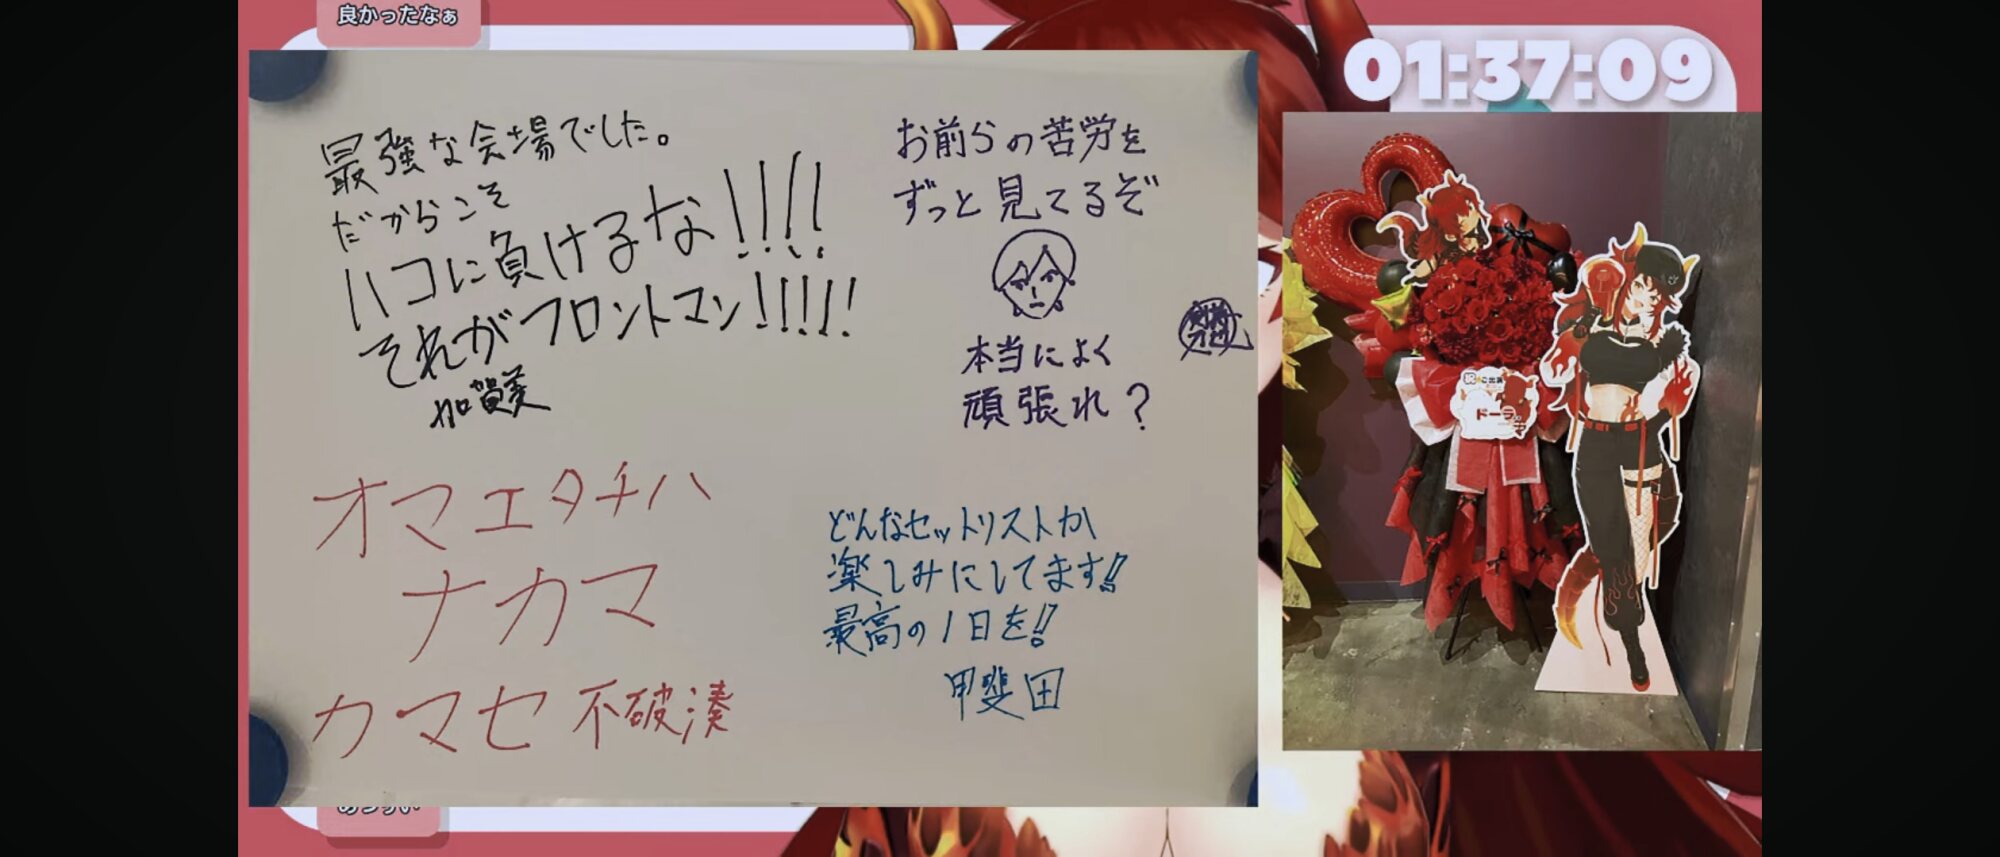 良かったなぁ
01:37:09
最強な会場でした。
だからこそ
ハコに負けるな!!!!
それがフロントマン!!!!!
加賀美
お前らの苦労を
ずっと見てるぞ
本当によく
頑張れ?
オマエタチハ
ナカマ
カマセ 不破湊
どんなセットリストか
楽しみにしてます!!
最高の1日を!!
甲斐田
祝 ご出演
ドーラ